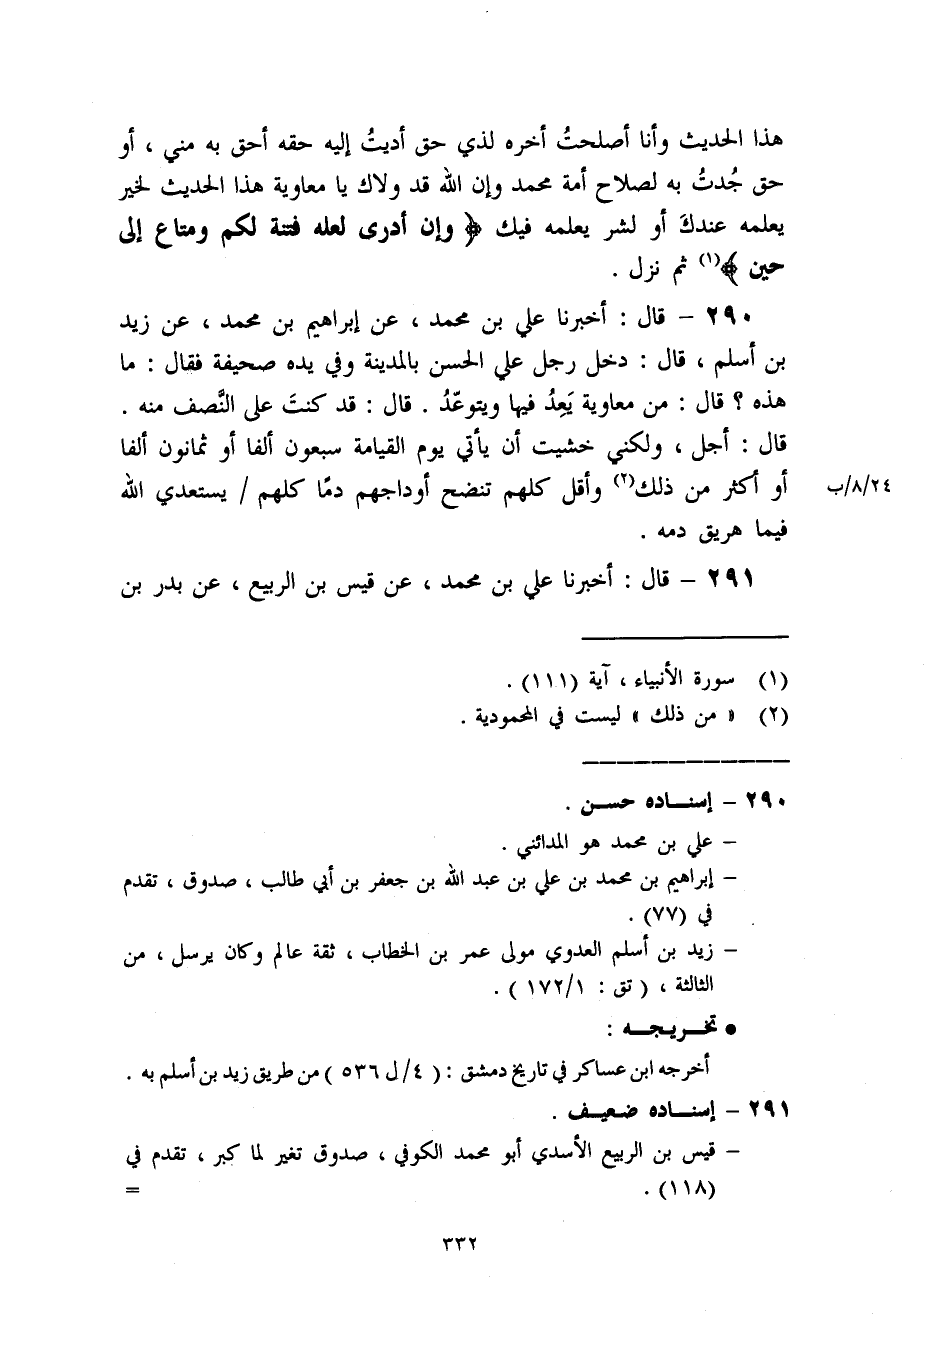 هذا الحديث وأنا أصلحتُ أخره لذي حق أديتُ إليه حقه أحق به مني ، أو
حق جُدتُ به لصلاح أمة محمد وإن الله قد ولاك يا معاوية هذا الحديث لخير
يعلمه عندكَ أو لشر يعلمه فيك ﴿ وإن أدرى لعله فتنة لكم ومتاع إلى
حين ﴾(١) ثم نزل .
٢٩٠ – قال : أخبرنا علي بن محمد ، عن إبراهيم بن محمد ، عن زيد
بن أسلم ، قال : دخل رجل علي الحسن بالمدينة وفي يده صحيفة فقال : ما
هذه ؟ قال : من معاوية يَعِدُ فيها ويتوعّدُ . قال : قد كنتَ على النَّصف منه .
قال : أجل ، ولكني خشيت أن يأتي يوم القيامة سبعون ألفا أو ثمانون ألفا
أو أكثر من ذلك(٢) وأقل كلهم تنضح أوداجهم دمًا كلهم / يستعدي الله
٨/٢٤/ب
فيما هريق دمه .
٢٩١ – قال : أخبرنا علي بن محمد ، عن قيس بن الربيع ، عن بدر بن
(١) سورة الأنبياء ، آية (١١١) .
(٢) « من ذلك » ليست في المحمودية .
٢٩٠ – إسنــاده حســن .
– علي بن محمد هو المدائني .
– إبراهيم بن محمد بن علي بن عبد الله بن جعفر بن أبي طالب ، صدوق ، تقدم
في (٧٧) .
– زيد بن أسلم العدوي مولى عمر بن الخطاب ، ثقة عالم وكان يرسل ، من
الثالثة ، ( تق : ١٧٢/١ ) .
● تخــريجــه :
أخرجه ابن عساكر في تاريخ دمشق : ( ٤/ ل ٥٣٦ ) من طريق زيد بن أسلم به .
٢٩١ – إسنــاده ضـعيـف .
– قيس بن الربيع الأسدي أبو محمد الكوفي ، صدوق تغير لما كبر ، تقدم في
(١١٨) .
=
٣٣٢